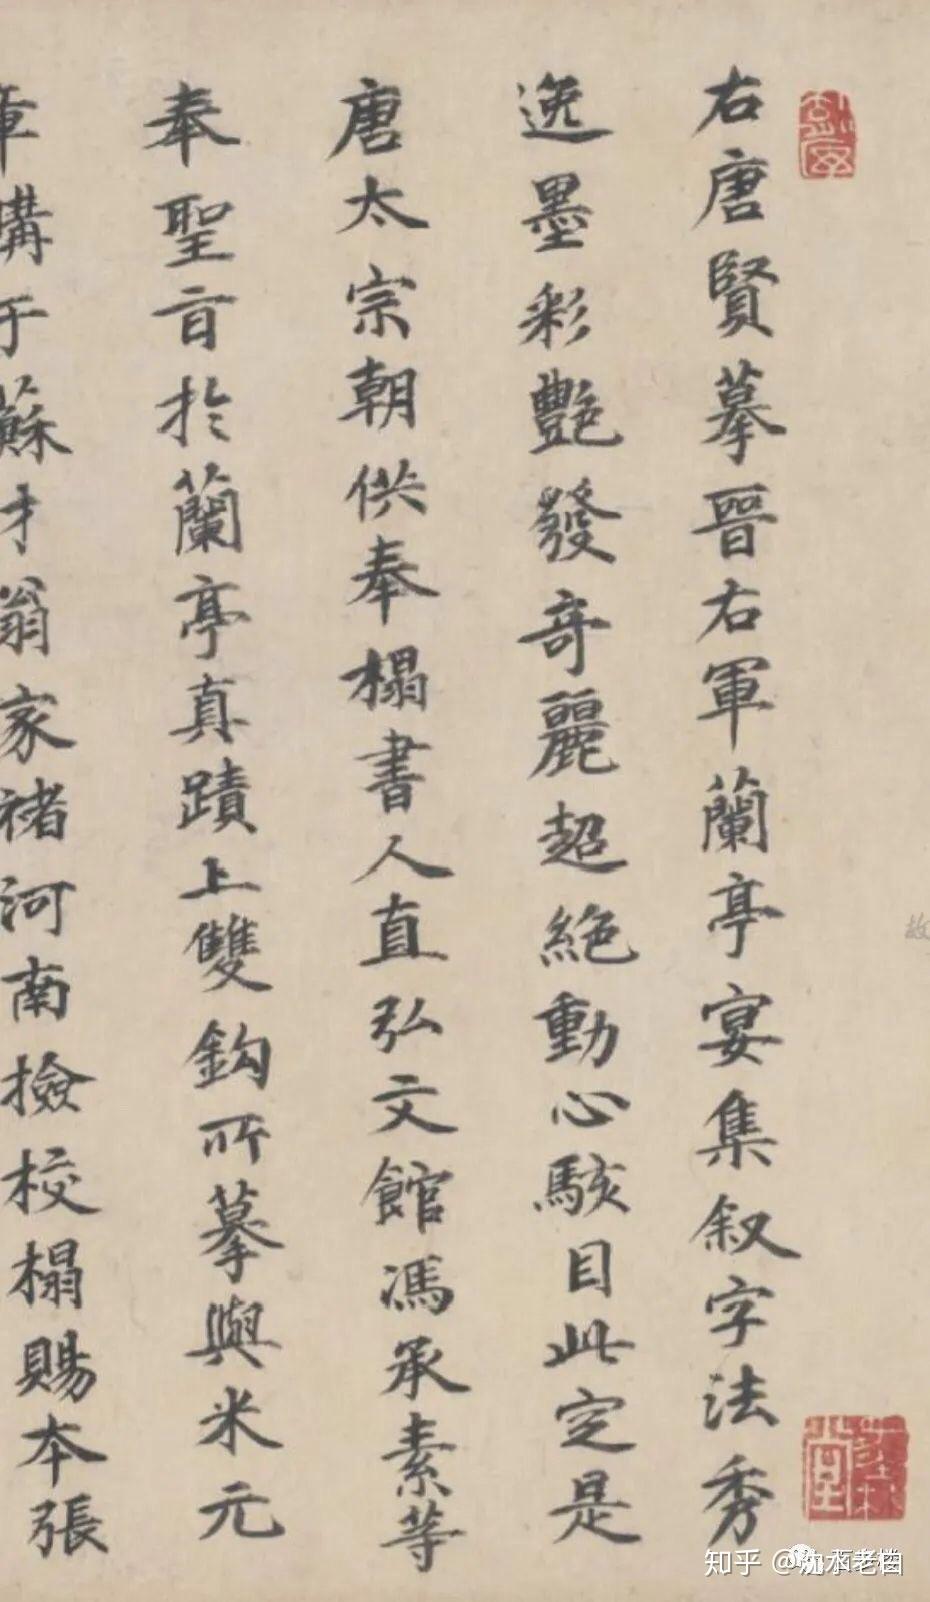 右唐賢摹晉右軍蘭亭宴集叙字法秀
逸墨彩艷發奇麗超絶動心駭目此定是
唐太宗朝供奉榻書人直弘文館馮承素等
奉聖旨於蘭亭真蹟上雙鈎所摹與米元
章購于蘇才翁家褚河南撿校榻賜本張
故
知乎 @沩水老白